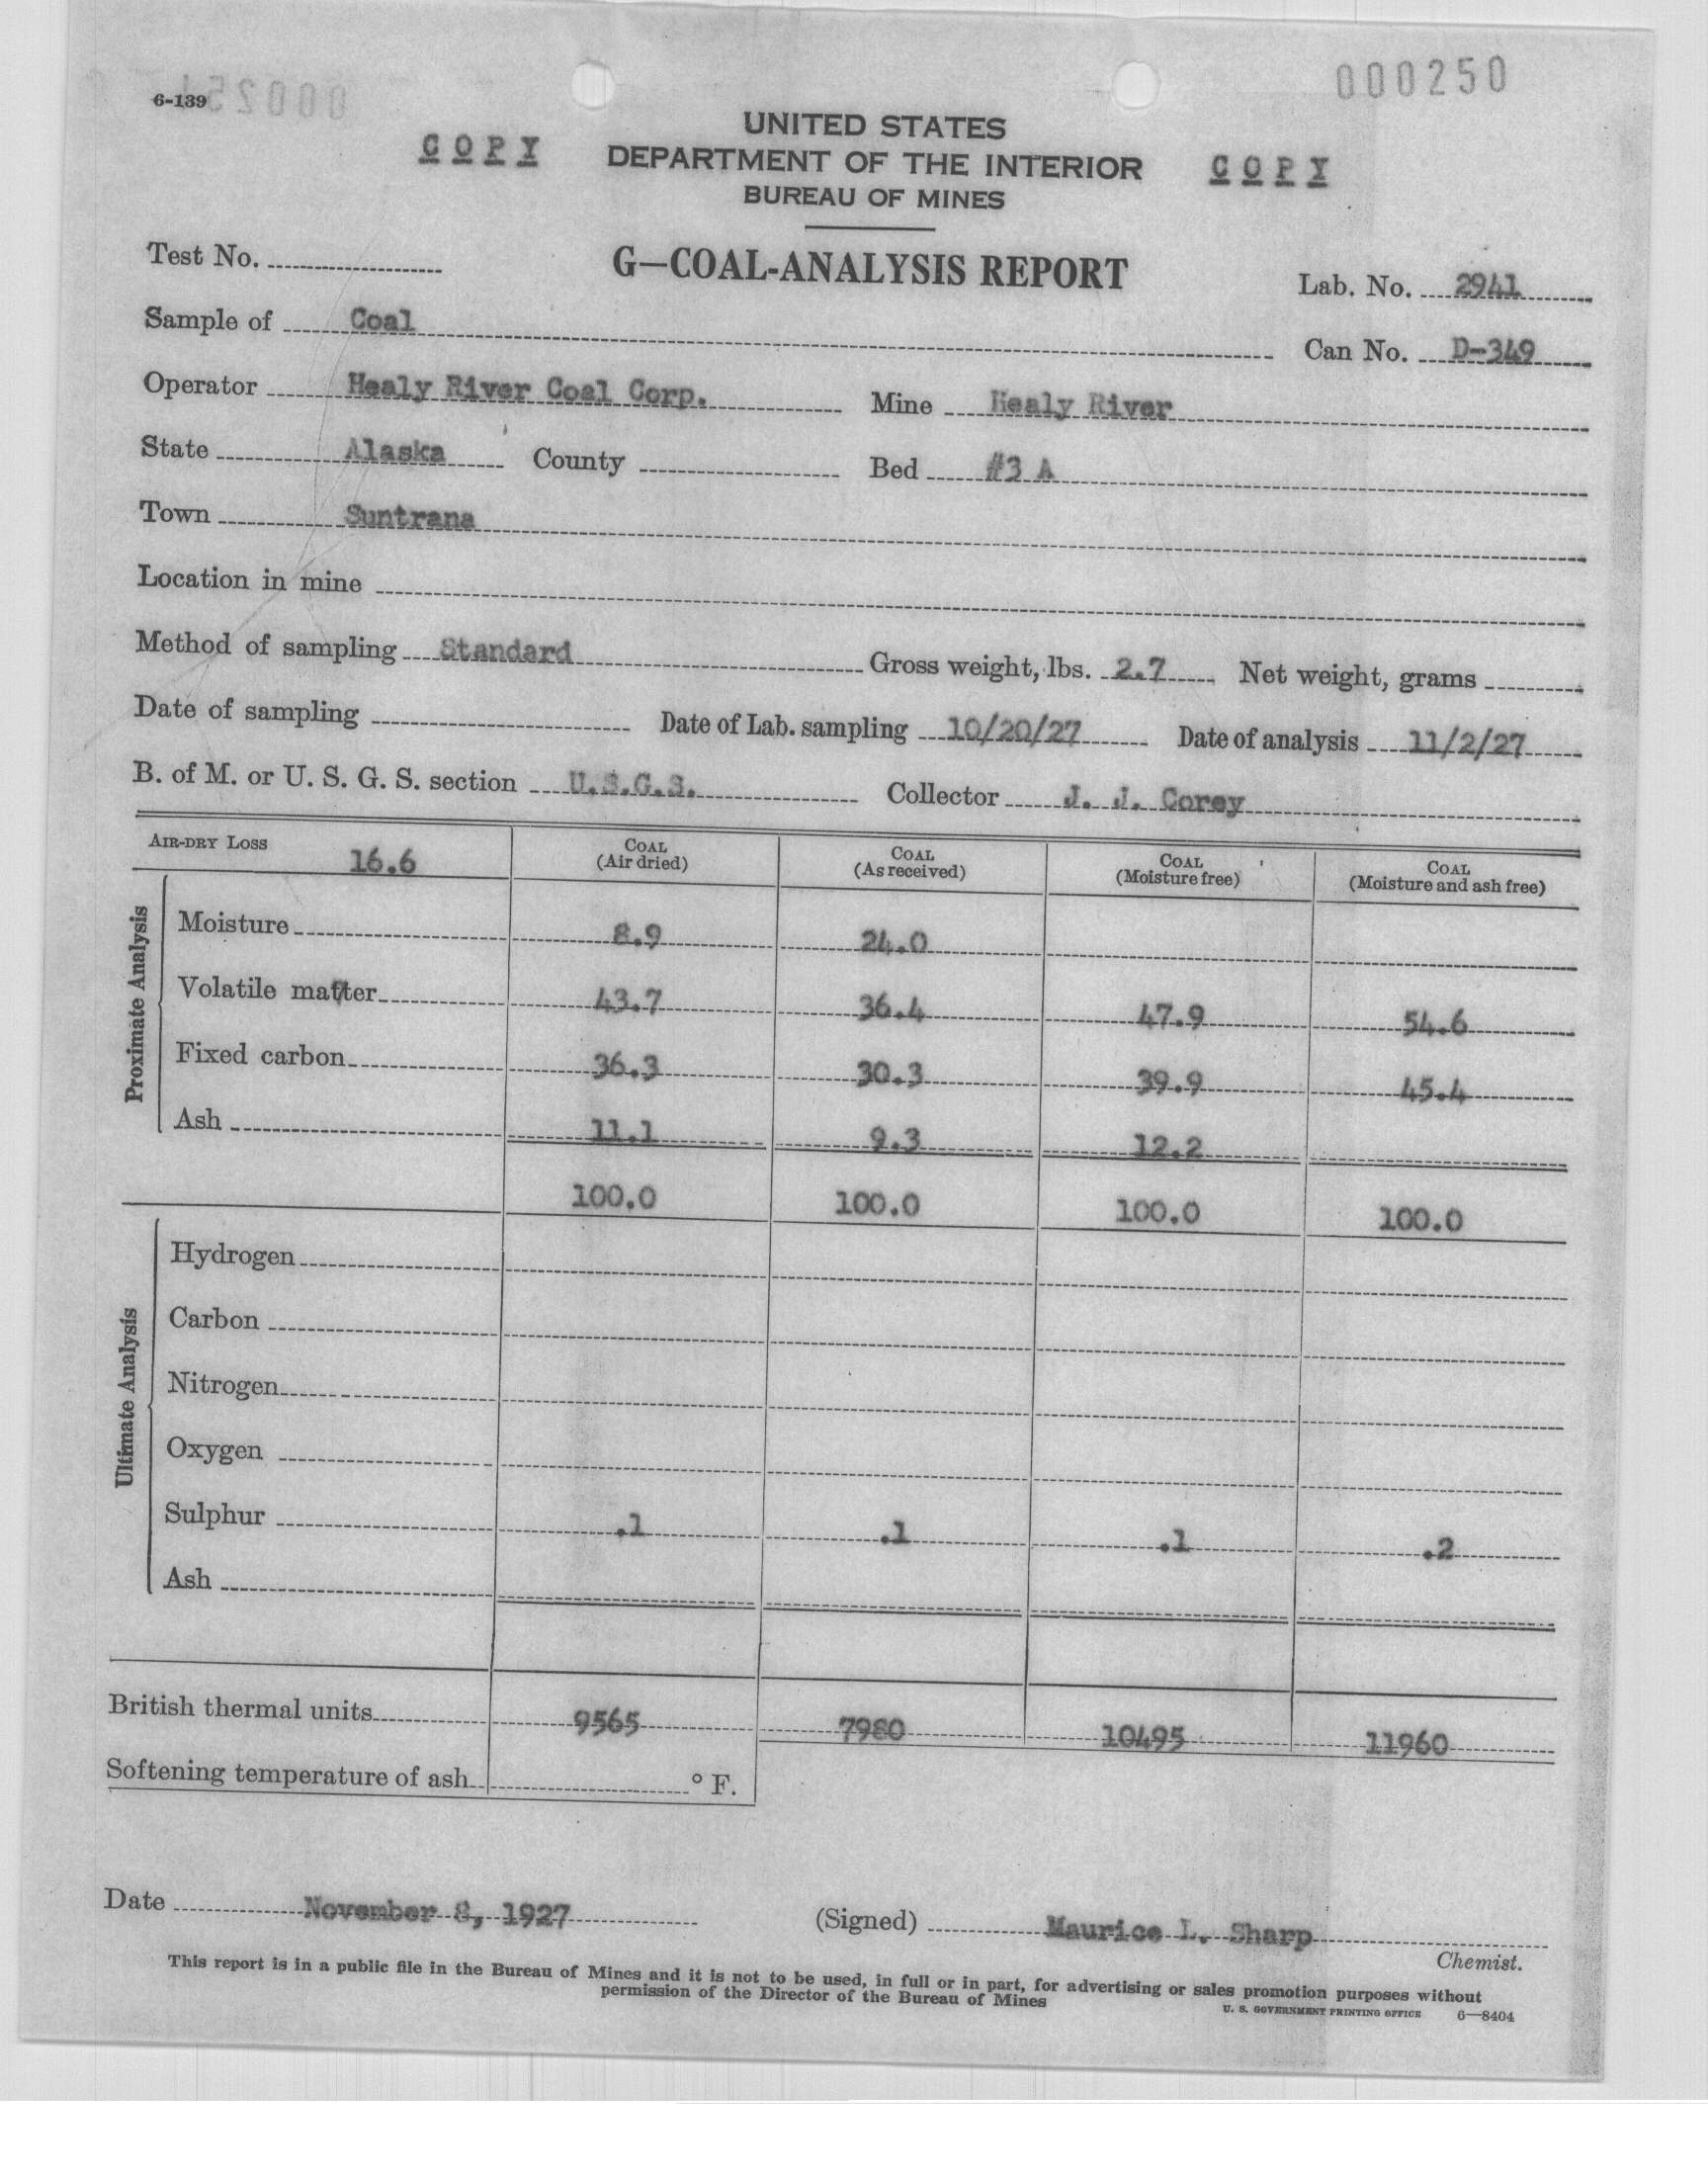 000250
6-139
UNITED STATES
COPY DEPARTMENT OF THE INTERIOR COPY
BUREAU OF MINES
Test No. G—COAL-ANALYSIS REPORT Lab. No. 2941
Sample of Coal Can No. D-349
Operator Healy River Coal Corp. Mine Healy River
State Alaska County Bed #3 A
Town Suntrana
Location in mine
Method of sampling Standard Gross weight, lbs. 2.7 Net weight, grams
Date of sampling Date of Lab. sampling 10/20/27 Date of analysis 11/2/27
B. of M. or U. S. G. S. section U.S.G.S. Collector J. J. Corey
AIR-DRY LOSS 16.6 COAL (Air dried) COAL (As received) COAL (Moisture free) COAL (Moisture and ash free)
Proximate Analysis
Moisture 8.9 24.0
Volatile matter 43.7 36.4 47.9 54.6
Fixed carbon 36.3 30.3 39.9 45.4
Ash 11.1 9.3 12.2
100.0 100.0 100.0 100.0
Ultimate Analysis
Hydrogen
Carbon
Nitrogen
Oxygen
Sulphur .1 .1 .1 .2
Ash
British thermal units 9565 7980 10495 11960
Softening temperature of ash ° F.
Date November 8, 1927 (Signed) Maurice L. Sharp
Chemist.
This report is in a public file in the Bureau of Mines and it is not to be used, in full or in part, for advertising or sales promotion purposes without
permission of the Director of the Bureau of Mines
U. S. GOVERNMENT PRINTING OFFICE 6—8404